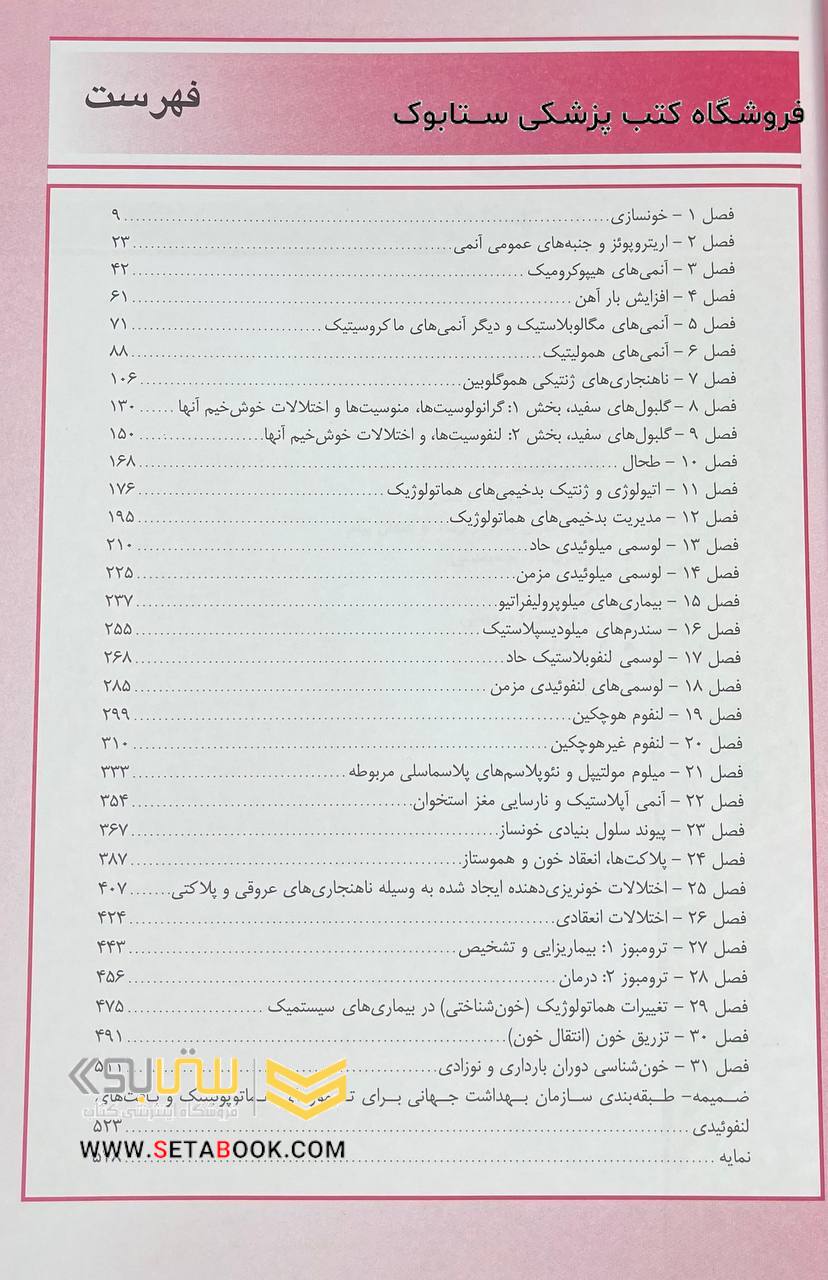 فهرست
فروشگاه کتب پزشکی ستابوک
فصل ۱ – خونسازی ۹
فصل ۲ – اریتروپوئز و جنبه‌های عمومی آنمی ۲۳
فصل ۳ – آنمی‌های هیپوکرومیک ۴۲
فصل ۴ – افزایش بار آهن ۶۱
فصل ۵ – آنمی‌های مگالوبلاستیک و دیگر آنمی‌های ماکروسیتیک ۷۱
فصل ۶ – آنمی‌های همولیتیک ۸۸
فصل ۷ – ناهنجاری‌های ژنتیکی هموگلوبین ۱۰۶
فصل ۸ – گلبول‌های سفید، بخش ۱: گرانولوسیت‌ها، منوسیت‌ها و اختلالات خوش‌خیم آنها ۱۳۰
فصل ۹ – گلبول‌های سفید، بخش ۲: لنفوسیت‌ها، و اختلالات خوش‌خیم آنها ۱۵۰
فصل ۱۰ – طحال ۱۶۸
فصل ۱۱ – اتیولوژی و ژنتیک بدخیمی‌های هماتولوژیک ۱۷۶
فصل ۱۲ – مدیریت بدخیمی‌های هماتولوژیک ۱۹۵
فصل ۱۳ – لوسمی میلوئیدی حاد ۲۱۰
فصل ۱۴ – لوسمی میلوئیدی مزمن ۲۲۵
فصل ۱۵ – بیماری‌های میلوپرولیفراتیو ۲۳۷
فصل ۱۶ – سندرم‌های میلودیسپلاستیک ۲۵۵
فصل ۱۷ – لوسمی لنفوبلاستیک حاد ۲۶۸
فصل ۱۸ – لوسمی‌های لنفوئیدی مزمن ۲۸۵
فصل ۱۹ – لنفوم هوچکین ۲۹۹
فصل ۲۰ – لنفوم غیرهوچکین ۳۱۰
فصل ۲۱ – میلوم مولتیپل و نئوپلاسم‌های پلاسماسلی مربوطه ۳۳۳
فصل ۲۲ – آنمی آپلاستیک و نارسایی مغز استخوان ۳۵۴
فصل ۲۳ – پیوند سلول بنیادی خونساز ۳۶۷
فصل ۲۴ – پلاکت‌ها، انعقاد خون و هموستاز ۳۸۷
فصل ۲۵ – اختلالات خونریزی‌دهنده ایجاد شده به وسیله ناهنجاری‌های عروقی و پلاکتی ۴۰۷
فصل ۲۶ – اختلالات انعقادی ۴۲۴
فصل ۲۷ – ترومبوز ۱: بیماریزایی و تشخیص ۴۴۳
فصل ۲۸ – ترومبوز ۲: درمان ۴۵۶
فصل ۲۹ – تغییرات هماتولوژیک (خون‌شناختی) در بیماری‌های سیستمیک ۴۷۵
فصل ۳۰ – تزریق خون (انتقال خون) ۴۹۱
فصل ۳۱ – خون‌شناسی دوران بارداری و نوزادی ۵۱۱
ضمیمه– طبقه‌بندی سازمان بهداشت جهانی برای
لنفوئیدی ۵۲۳
نمایه
ستابوک
فروشگاه اینترنتی کتاب
WWW.SETABOOK.COM